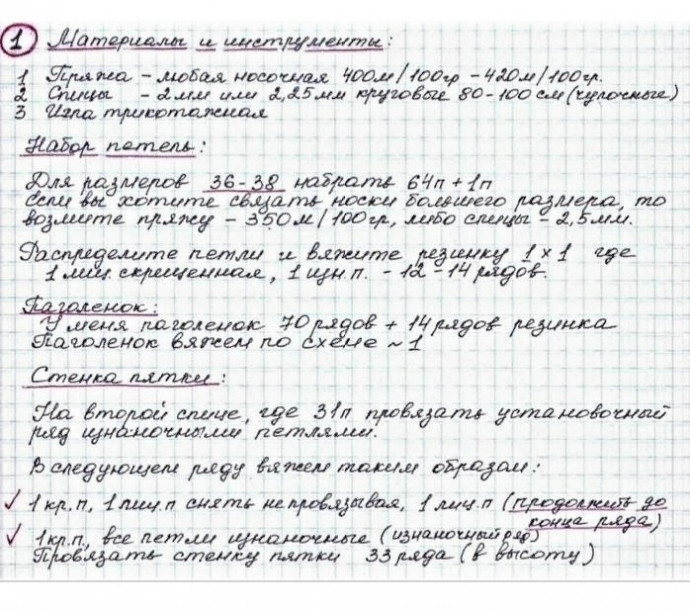 1 Материалы и инструменты:
1 Пряжа – любая носочная 400м/100гр – 420м/100гр.
2 Спицы – 2мм или 2,25мм круговые 80-100см (чулочные)
3 Игла трикотажная
Набор петель:
Для размеров 36-38 набрать 64п + 1п
Если вы хотите связать носки большего размера, то
возмите пряжу – 350м/100гр, либо спицы – 2,5мм.
Распределите петли и вяжите резинку 1 x 1 где
1 лиц. скрещенная, 1 изн.п. – 12-14 рядов.
Паголенок:
У меня паголенок 70 рядов + 14 рядов резинка
Паголенок вяжем по схеме ~ 1
Стенка пятки:
На второй спице, где 31п провязать установочный
ряд изнаночными петлями.
В следующем ряду вяжем таким образом:
✓ 1 кр.п, 1 лиц.п снять не провязывая, 1 лиц.п (продолжить до
конца ряда)
✓ 1 кр.п., все петли изнаночные (изнаночный ряд)
Провязать стенку пятки 33 ряда (в высоту)